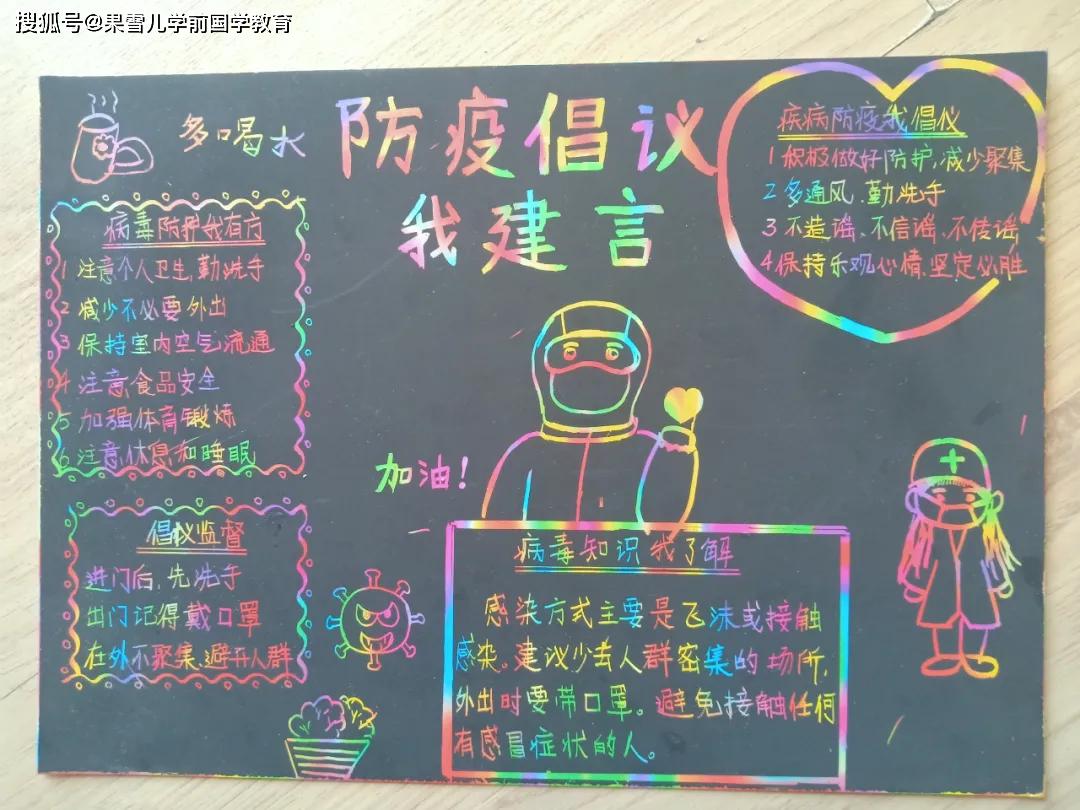 搜狐号@果雪儿学前国学教育
多喝水
防疫倡议
我建言
疾病防疫我倡仪
1 积极做好防护,减少聚集
2 多通风、勤洗手
3 不造谣、不信谣、不传谣
4 保持乐观心情、坚定必胜
病毒防护我有方
1 注意个人卫生,勤洗手
2 减少不必要外出
3 保持室内空气流通
4 注意食品安全
5 加强体育锻炼
6 注意休息和睡眠
加油!
倡议监督
进门后,先洗手
出门记得戴口罩
在外不聚集、避开人群
病毒知识我了解
感染方式主要是飞沫或接触
感染。建议少去人群密集的场所,
外出时要带口罩。避免接触任何
有感冒症状的人。